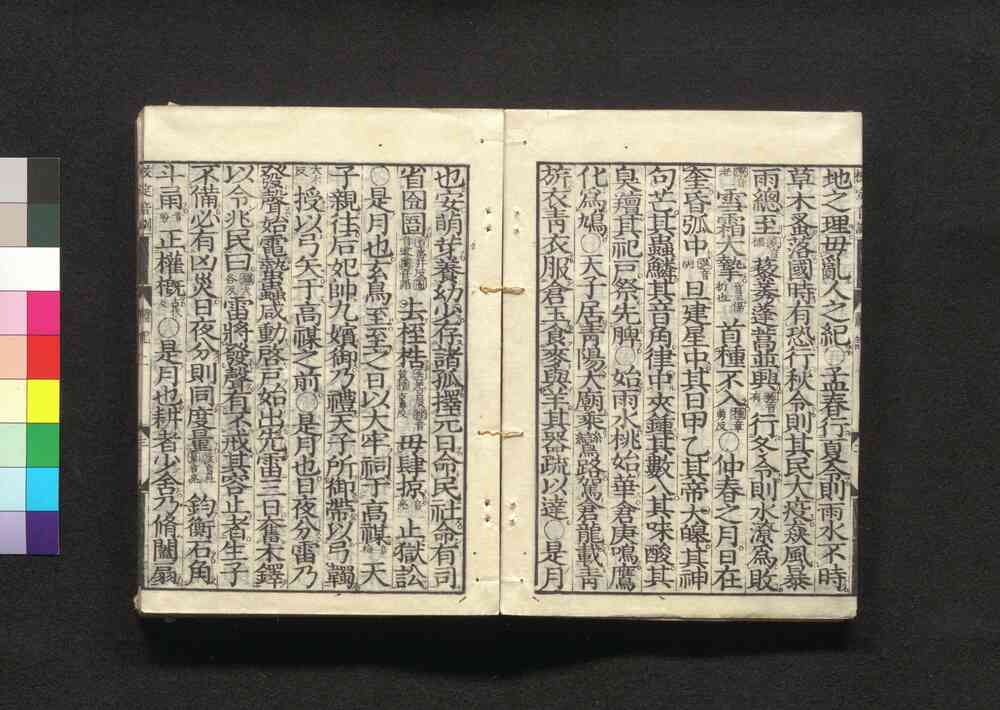 地之理毋亂人之紀○孟春行夏令則雨水不時
草木蚤落國時有恐行秋令則其民大疫猋風暴
雨總至藜莠蓬蒿並興行冬令則水潦為敗
雪霜大摯首種不入○仲春之月日在
奎昏弧中旦建星中其日甲乙其帝大皞其神
句芒其蟲鱗其音角律中夾鍾其數八其味酸其
臭羶其祀戸祭先脾○始雨水桃始華倉庚鳴鷹
化為鳩○天子居青陽大廟乗鸞路駕倉龍載青
旂衣青衣服倉玉食麥與羊其器疏以達○是月
也安萌芽養幼少存諸孤擇元日命民社命有司
省囹圄去桎梏毋肆掠止獄訟
○是月也玄鳥至至之日以大牢祠于高禖天
子親往后妃帥九嬪御乃禮天子所御帶以弓韣
授以弓矢于高禖之前○是月也日夜分雷乃
發聲始電蟄蟲咸動啓戸始出先雷三日奮木鐸
以令兆民曰雷將發聲有不戒其容止者生子
不備必有凶災日夜分則同度量鈞衡石角
斗甬正權概○是月也耕者少舎乃脩闔扇